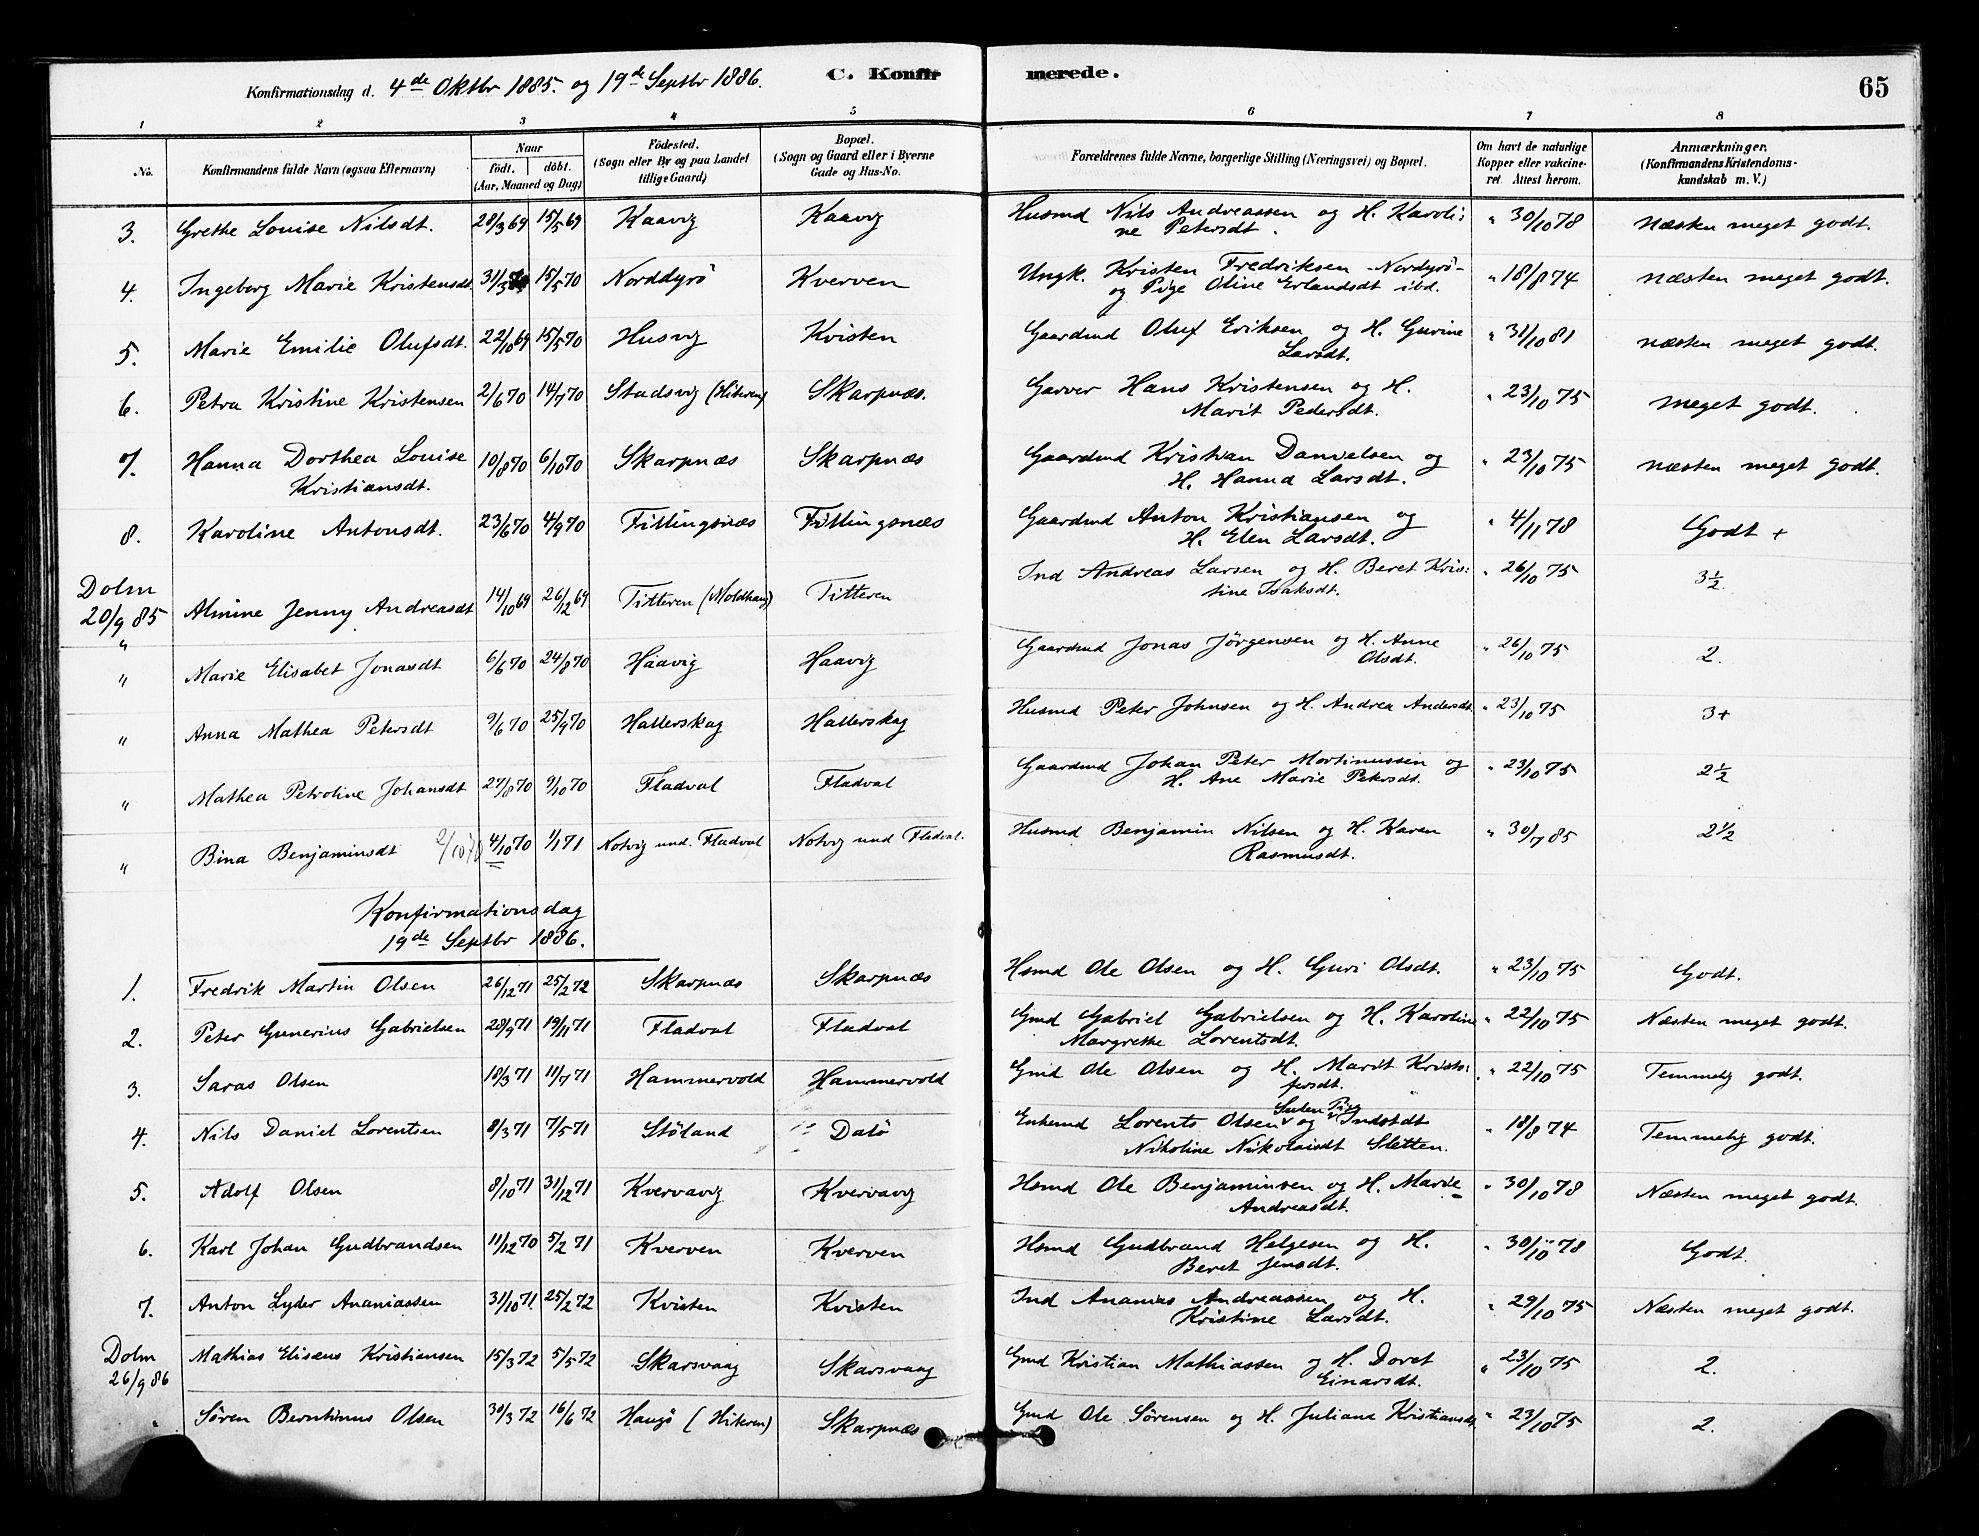 Konfirmationsdag d. 4de Oktbr 1885. og 19de Septbr 1886. C. Konfirmerede. 65
1 2 3 4 5 6 7 8
No. Konfirmandens fulde Navn (ogsaa Efternavn) Naar født. døbt. (Aar, Maaned og Dag) Fødested. (Sogn eller By og paa Landet tillige Gaard) Bopæl. (Sogn og Gaard eller i Byerne Gade og Hus-No. Forældrenes fulde Navne, borgerlige Stilling (Næringsvei) og Bopæl. Om havt de naturlige Kopper eller vakcineret. Attest herom. Anmærkninger. (Konfirmandens Kristendomskundskab m. V.)
3. Grethe Louise Nilsdt. 28/3 69 15/5 69 Kaavig Kaavig Husmd Nils Andreassen og H. Karoli:
ne Petersdt. " 30/10 78 Næsten meget godt.
4. Ingeborg Marie Kristensdt 31/3 70 15/5 70 Norddyrø Kverven Ungk. Kristen Fredriksen - Nordyrø -
og Pige Oline Erlandsdt ibd. " 18/8 74 næsten meget godt.
5. Marie Emilie Olufsdt. 22/10 69 15/5 70 Husvig Kvisten Gaardmd Oluf Eriksen og H. Gurine
Larsdt. " 31/10 81 næsten meget godt.
6. Petra Kristine Kristensen 2/6 70 14/7 70 Stadsvig (Hiteren) Skarpnæs. Garver Hans Kristensen og H.
Marit Pedersdt. " 23/10 75 meget godt.
7. Hanna Dorthea Louise
Kristiansdt. 10/8 70 6/10 70 Skarpnæs Skarpnæs Gaardmd Kristian Danielsen og
H. Hanna Larsdt. " 23/10 75 næsten meget godt.
8. Karoline Antonsdt. 23/6 70 4/9 70 Fillingsnæs Fillingsnæs Gaardmd Anton Kristiansen og
H. Elen Larsdt. " 4/11 78 Godt +
Dolm
20/9 85 Almine Jenny Andreasdt 14/10 69 26/12 69 Titteren (Moldhaug) Titteren Ind Andreas Larsen og H. Beret Kris:
tine Isaksdt. " 26/10 75 3½
" Marie Elisabet Jonasdt 6/6 70 24/8 70 Haavig Haavig Gaardmd Jonas Jørgensen og H. Anne
Olsdt. " 26/10 75 2.
" Anna Mathea Petersdt 9/6 70 25/9 70 Hallerskag Hallerskag Husmd Peter Johnsen og H. Andrea Andersdt. " 23/10 75 3+
" Mathea Petroline Johansdt 27/8 70 9/10 70 Fladval Fladval Gaardmd Johan Peter Martinussen og
H. Ane Marie Petersdt. " 23/10 75 2½
" Bina Benjaminsdt 2/10 70 4/10 70 1/1 71 Notvig und. Fladval Notvig und Fladval. Husmd Benjamin Nilsen og H. Karen
Rasmusdt. " 30/7 85 2½
Konfirmationsdag
19de Septbr 1886.
1. Fredrik Martin Olsen 26/12 71 25/2 72 Skarpnæs Skarpnæs Hsmd Ole Olsen og H. Guri Olsdt. " 23/10 75 Godt.
2. Peter Gunerius Gabrielsen 28/9 71 19/11 71 Fladval Fladval Gmd Gabriel Gabrielsen og H. Karoline
Margrethe Lorentsdt. " 22/10 75 Næsten meget godt.
3. Saras Olsen 18/3 71 11/7 71 Hammervold Hammervold Gmd Ole Olsen og H. Marit Kristo:
fersdt. " 22/10 75 Temmelig godt.
4. Nils Daniel Lorentsen 8/3 71 7/5 71 Støland Dalø Enkemd Lorents Olsen og Pige Indstdt
Nikoline Nikolaisdt Sletten. " 18/8 74 Temmelig godt.
5. Adolf Olsen 8/10 71 31/12 71 Kvervavig Kvervavig Hsmd Ole Benjaminsen og H. Marie
Andreasdt. " 30/10 78 Næsten meget godt.
6. Karl Johan Gudbrandsen 11/12 70 5/2 71 Kverven Kverven Hsmd Gudbrand Helgesen og H.
Beret Jensdt. " 30/10 78 Godt.
7. Anton Lyder Ananiassen 31/10 71 25/2 72 Kvisten Kvisten Ind Ananias Andreassen og H.
Kristine Larsdt. " 29/10 75 Næsten meget godt.
Dolm
26/9 86 Mathias Eliseus Kristiansen 15/3 72 5/5 72 Skarsvaag Skarsvaag Gmd Kristian Mathiassen og H. Doret
Einarsdt. " 23/10 75 2.
" Søren Berntinus Olsen 30/3 72 16/6 72 Haugø (Hiteren) Skarpnæs Gmd Ole Sørensen og H. Juliana Kristiansdt. " 23/10 75 2.